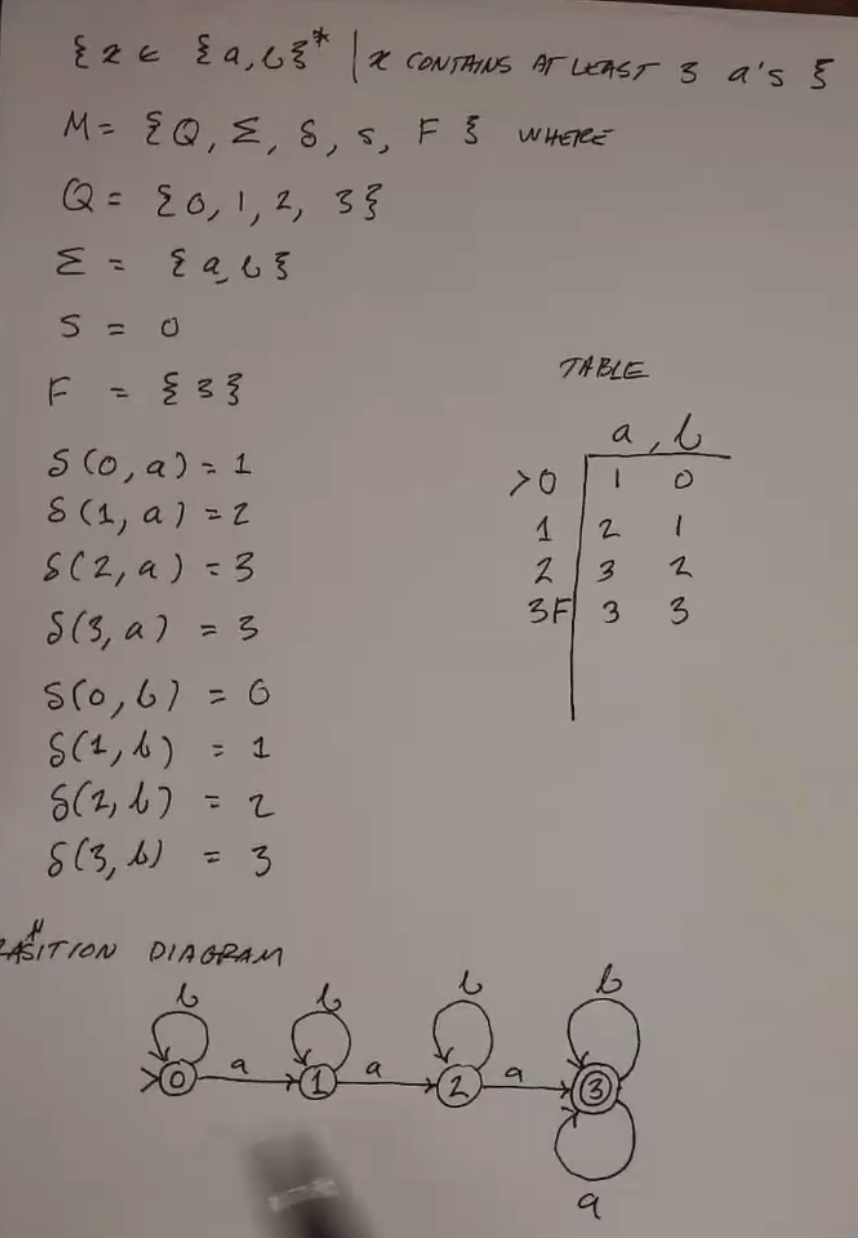 {x ∈ {a,b}* | x CONTAINS AT LEAST 3 a's }
M = {Q, Σ, δ, s, F } WHERE
Q = {0, 1, 2, 3}
Σ = {a, b}
S = 0
F = {3}
δ(0, a) = 1
δ(1, a) = 2
δ(2, a) = 3
δ(3, a) = 3
δ(0, b) = 0
δ(1, b) = 1
δ(2, b) = 2
δ(3, b) = 3
TABLE
a , b
>0 1 0
1 2 1
2 3 2
3F 3 3
DIAGRAM
b b b b
>0 a 1 a 2 a 3
a